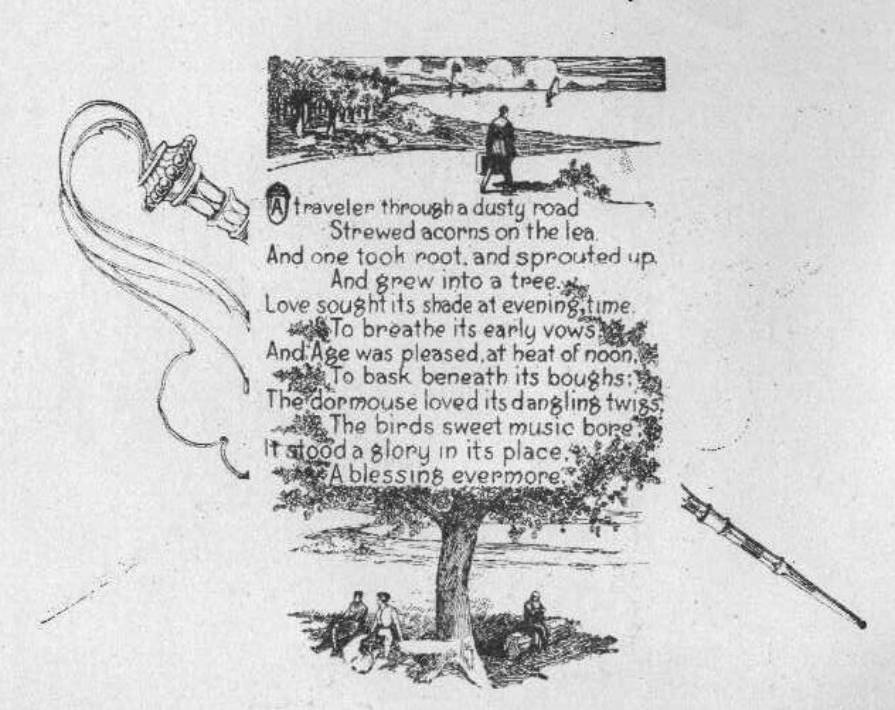 A traveler through a dusty road
Strewed acorns on the lea.
And one took root, and sprouted up,
And grew into a tree.
Love sought its shade at evening time,
To breathe its early vows,
And Age was pleased, at heat of noon,
To bask beneath its boughs:
The dormouse loved its dangling twigs,
The birds sweet music bore,
It stood a glory in its place,
A blessing evermore.